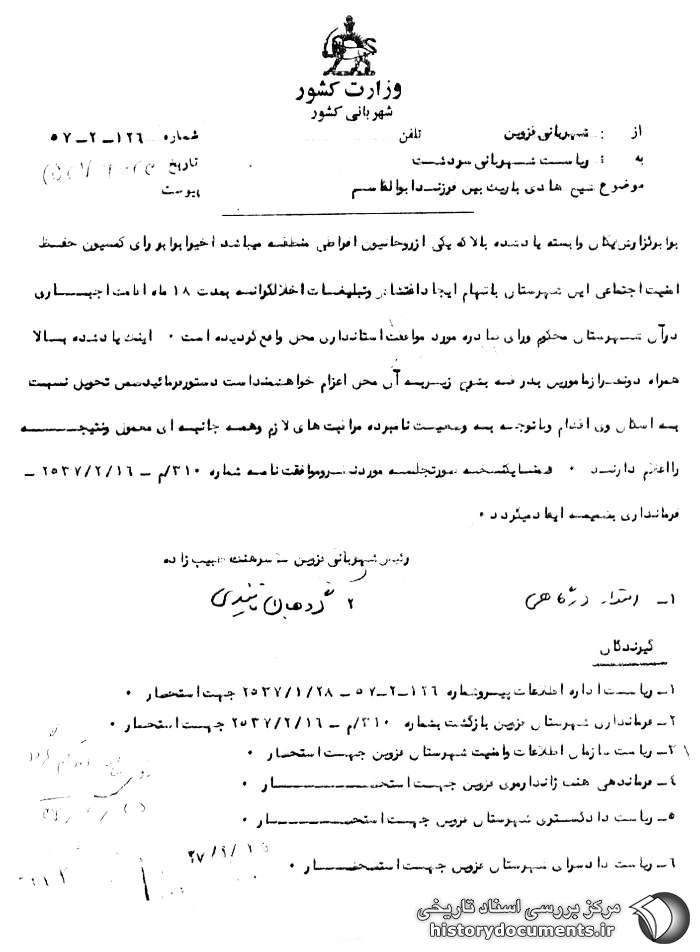 وزارت کشور
شهربانی کشور
از : شهربانی قزوین تلفن شماره ۱۲۶-۲-۵۷
به : ریاست شهربانی سردشت تاریخ
موضوع شیخ هادی باریک بین فرزند ابوالقاسم پیوست
برابر گزارش یگان وابسته یاد شده بالا که یکی از روحانیون افراطی منطقه میباشد اخیرا برابر رای کمسیون حفظ
امنیت اجتماعی این شهرستان باتهام ایجاد اغتشاش و تبلیغات اخلالگرانه بمدت ۱۸ ماه اقامت اجباری
در آن شهرستان محکوم و رای صادره مورد موافقت استانداری محل واقع گردیده است ۰ اینک یاد شده بالا
همراه دونفر از مامورین بدرقه بشرح زیر به آن محل اعزام خواهشمند است دستور فرمائید ضمن تحویل نسبت
به اسکان وی اقدام و با توجه به وضعیت نامبرده مراقبت های لازم و همه جانبه ای معمول و نتیجه
را اعلام دارند ۰ ضمنا یکنسخه صورتجلسه مورد نظر و موافقت نامه شماره ۳۱۰/م - ۲۵۳۷/۲/۱۶ -
فرمانداری بضمیمه ایفاد میگردد ۰
رئیس شهربانی قزوین - سرهنگ حبیب زاده
۱-
۲
گیرندگان
۱- ریاست اداره اطلاعات پیرو شماره ۱۲۶-۲-۵۷ - ۲۵۳۷/۱/۲۸ جهت استحضار ۰
۲- فرمانداری شهرستان قزوین بازگشت بشماره ۳۱۰/م - ۲۵۳۷/۲/۱۶ جهت استحضار ۰
۳- ریاست سازمان اطلاعات و امنیت شهرستان قزوین جهت استحضار ۰
۴- فرماندهی هنگ ژاندارمری قزوین جهت استحضار ۰
۵- ریاست دادگستری شهرستان قزوین جهت استحضار ۰
۶- ریاست دادسرای شهرستان قزوین جهت استحضار ۰
مرکز بررسی اسناد تاریخی
historydocuments.ir